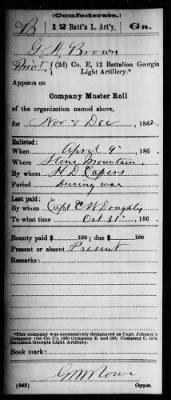 (Confederate.)
B 12 Batt'n L. Art'y, Ga.
G. M. Brown
Privt, (2d) Co. E, 12 Battalion Georgia
Light Artillery.*
Appears on
Company Muster Roll
of the organization named above,
for Nov & Dec, 1862.
Enlisted:
When April 9, 186
Where Stone Mountain
By whom H. D. Capers
Period during war
Last paid:
By whom Capt. C. W. Doughty
To what time Oct 31, 186
Bounty paid $ 100; due $ 100
Present or absent Present
Remarks:
*This Company was successively designated as Capt. Johnson's
Company (2d) Co. E and Company C, 12th
Battalion Georgia Light Artillery.
Book mark:
(642)
Copyist.